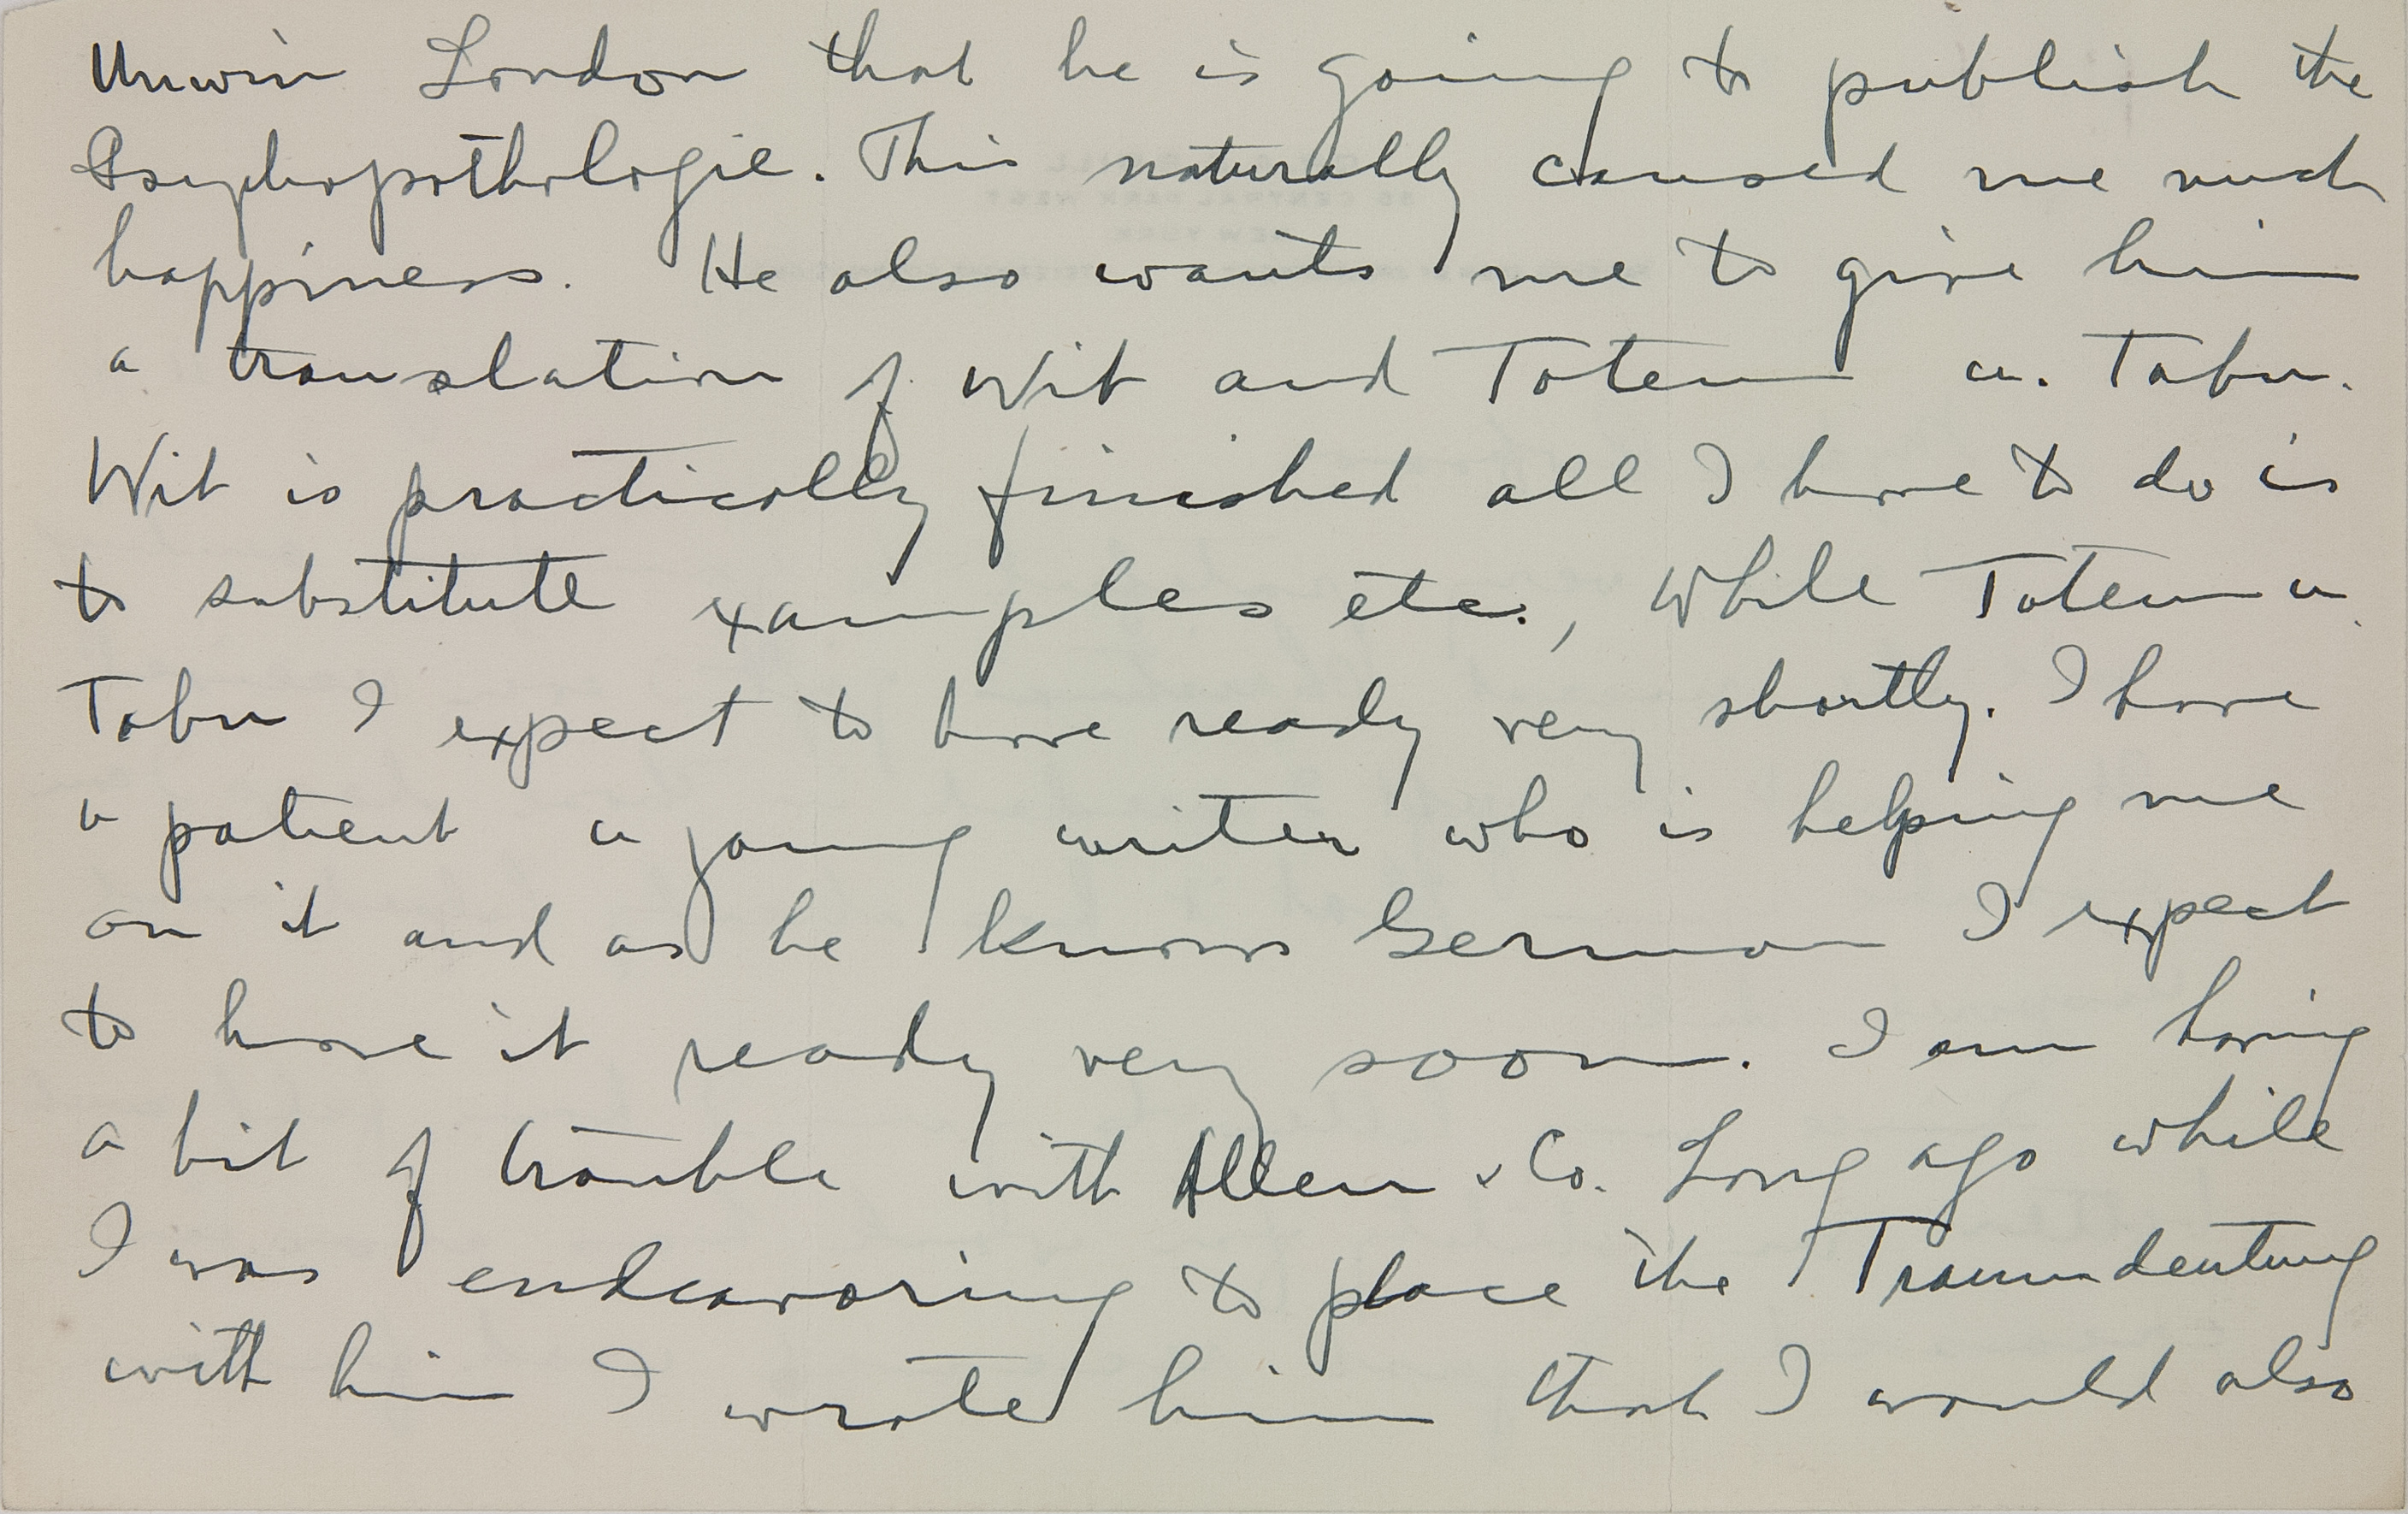 Unwin London that he is going to publish the
Psychopathologie. This naturally caused me much
happiness. He also wants me to give him
a translation of Wit and Totem u. Tabu.
Wit is practically finished all I have to do is
to substitute examples etc., while Totem u.
Tabu I expect to have ready very shortly. I have
a patient a young writer who is helping me
on it and as he knows German I expect
to have it ready very soon. I am having
a bit of trouble with Allen & Co. Long ago while
I was endeavoring to place the Traumdeutung
with him I wrote him that I would also